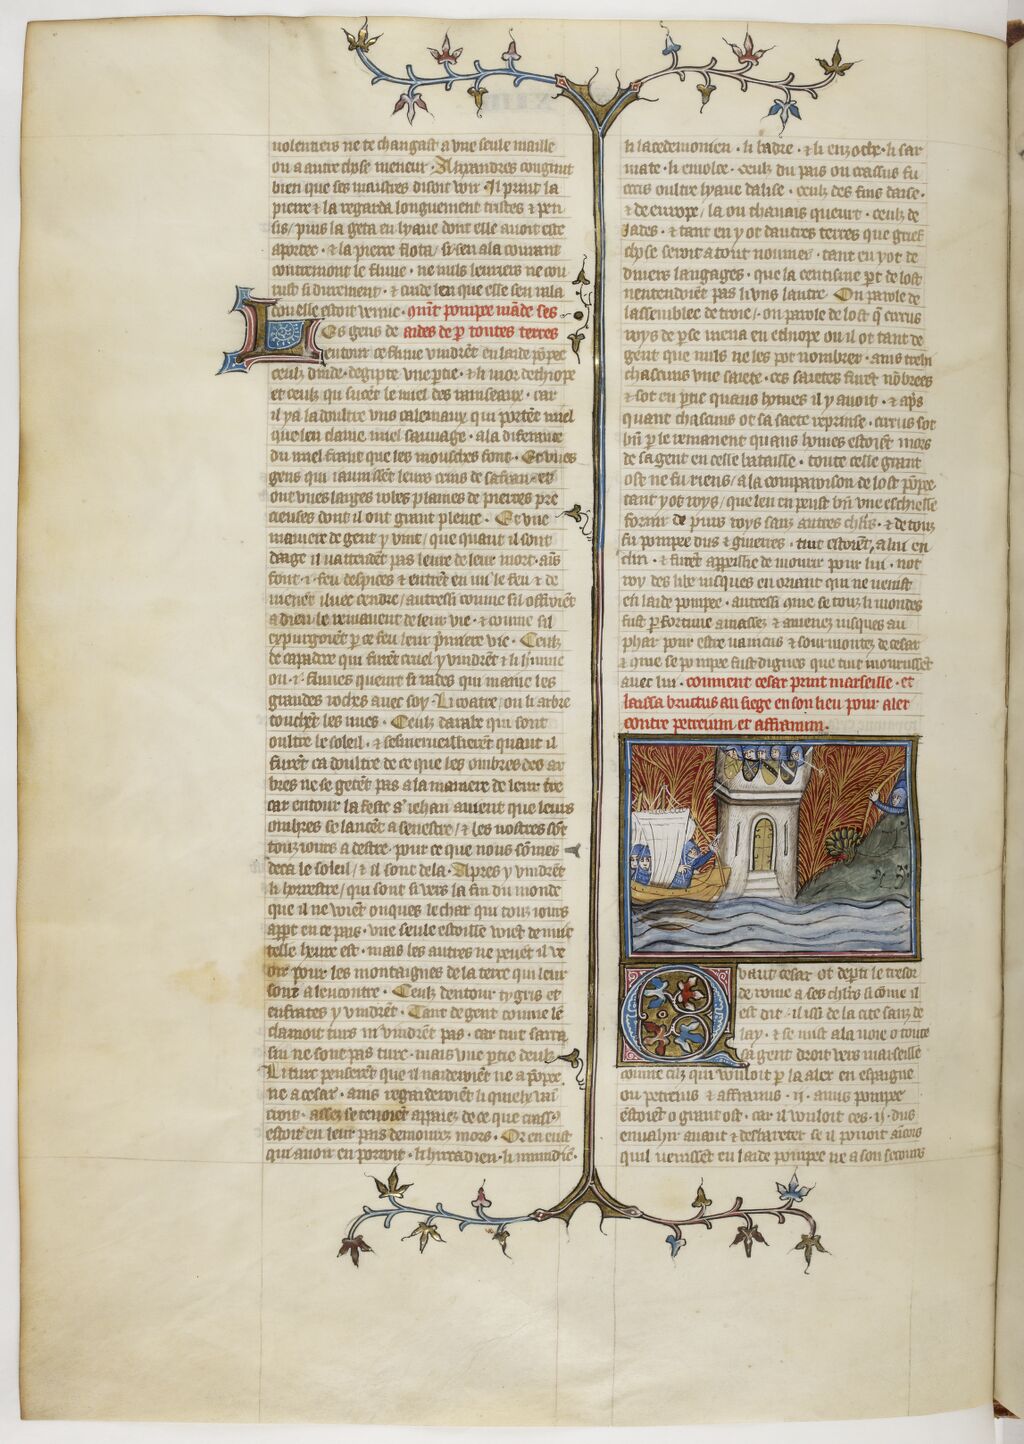 uolentiers ne te changast a vne seule maille
ou a autre chose meneur · Alixandres congnut
bien que ses maistres disoit voir · Il print la
pierre ⁊ la regarda longuement tristes ⁊ pen
sis / puis la geta en lyaue dont elle auoit este
aportee · ⁊ la pierre flota / si sen ala courant
contremont le fluue · ne nuls leuriers ne cou
rust si durement · ⁊ cuide len que elle sen rala
dou elle estoit venue · qm̄t pompee māde ses
Les gens de aides de p̱ toutes terres
entour ce fluue vindrēt en laide pōpee
ceulz dinde · degipte vne p̱tie · ⁊ li mor dethiope
et ceulz qui sucēt le miel des rainseaux · car
il ya la doultre vns calemaux qui portēt miel
que len claime miel sauuage · a la diference
du miel franc que les mousches font · Et vnes
gens qui iaunissēt leurs crins de safran · et
ont vnes larges robes plaines de pierres pre
cieuses dont il ont grant plente · Et vne
maniere de gent y vint / que quant il sont
daage il natendēt pas leure de leur mort · ais̄
font ·i· feu despices ⁊ entrēt en mi le feu ⁊ de
uienēt iluec cendre / autressi comme sil offroiēt
a dieu le remanent de leur vie · ⁊ comme sil
espurgoiēt p̱ ce feu leur p̄miere vie · Ceulz
de capadoce qui furēt cruel y vindrēt ⁊ li
ou ·i· fluues queurt si rades qui maine les
grandes roches auec soy · Li coatre / ou li arbre
touchēt les nues · Ceulz darabe qui sont
oultre le soleil · ⁊ se merueillierēt quant il
furēt ca doultre de ce que les ombres des ar
bres ne se getēt pas a la maniere de leur t̄re
car entour la feste s̾ iehan auient que leurs
ombres se lancēt a senestre / ⁊ les nostres sōt
touz iours a destre · pour ce que nous sōmes
deca le soleil / ⁊ il sont dela · Apres y vindrēt
li horrestre / qui sont si vers la fin du monde
que il ne voiēt onques le char qui touz iours
appt en ce pais · vne seule estoille voiēt de nuit
telle heure est · mais les autres ne peuēt il ve
oir pour les montaignes de la terre qui leur
sont a lencontre · Ceulz dentour tygris et
eufrates y vindrēt · Tant de gent comme lē
clamoit turs ni vindrēt pas · car tuit sarra
sin ne sont pas turc · mais vne p̱tie deulz
Li turc penserēt que il naideroiēt ne a pōpee
ne a cesar · ains regarderoiēt li quielx vai
croit · assez se tenoiēt apaiez de ce que crassꝰ
estoit en leur pais demourez mors · Or en eust
qui auoir en pouoit · li hircadien · li
li lacedemonien · li badre · ⁊ li enzoche · li sar
mate · li eniolce · ceulz du pais ou crassus fu
occis oultre lyaue dalise · ceulz des fins daise ·
⁊ de europe / la ou thanais queurt · ceulz de
gades · ⁊ tant en y ot dautres terres que grief
chose seroit a tout nommer · tant en y ot de
diuers langages · que la centisme p̱t de lost
nentendoiēt pas li vns lautre · On parole de
lassemblee de troie / on parole de lost q̄ cirrus
roys de p̱se mena en ethiope ou il ot tant de
gēnt que nuls ne les pot nombrer · ains treist
chascuns vne saiete · ces saietes furēt nōbrees
⁊ sot en p̱tie quans hōmes il y auoit · ⁊ apꝰs
quant chascuns ot sa saete reprinse · cirrus sot
bn̄ p̱ le remanent quans hōmes estoiēt mors
de sa gent en celle bataille · toute celle grant
ost ne fu riens / a la comparoison de lost pōpee
tant y ot roys / que len en peust bn̄ vne eschielle
fornir de purs roys sanz autres chlr̄s · ⁊ de touz
fu pompee dus ⁊ guierres · tuit estoiēt a lui en
clin · ⁊ furēt appresste de mourir pour lui · not
roy des libe iusques en oriant qui ne venist
en laide pompee · autressi que se touz li mondes
fust p̱ fortune amassez ⁊ amenez iusques au
phar pour estre vaincus ⁊ sourmontez de cesar
⁊ que se pompee fust dignes que tuit mourussēt
auec lui · comment cesar print marseille · et
laissa brutus au siege en son lieu pour aler
contre petreium et affranium ·
Quant cesar ot dep̱ti le tresor
de rome a ses chlr̄s si cōme il
est dit · il issi de la cite sanz de
lay · ⁊ se mist a la voie o toute
sa gent droit vers marseille
comme cilz qui vouloit p̱ la aler en espaigne
ou petreius ⁊ affranius ·ii· amis pompee
estoiēt o grant ost · car il vouloit ces ·ii· dus
enuahir auant ⁊ desbareter se il pouoit aīcois
quil venissēt en laide pompee ne a son secours